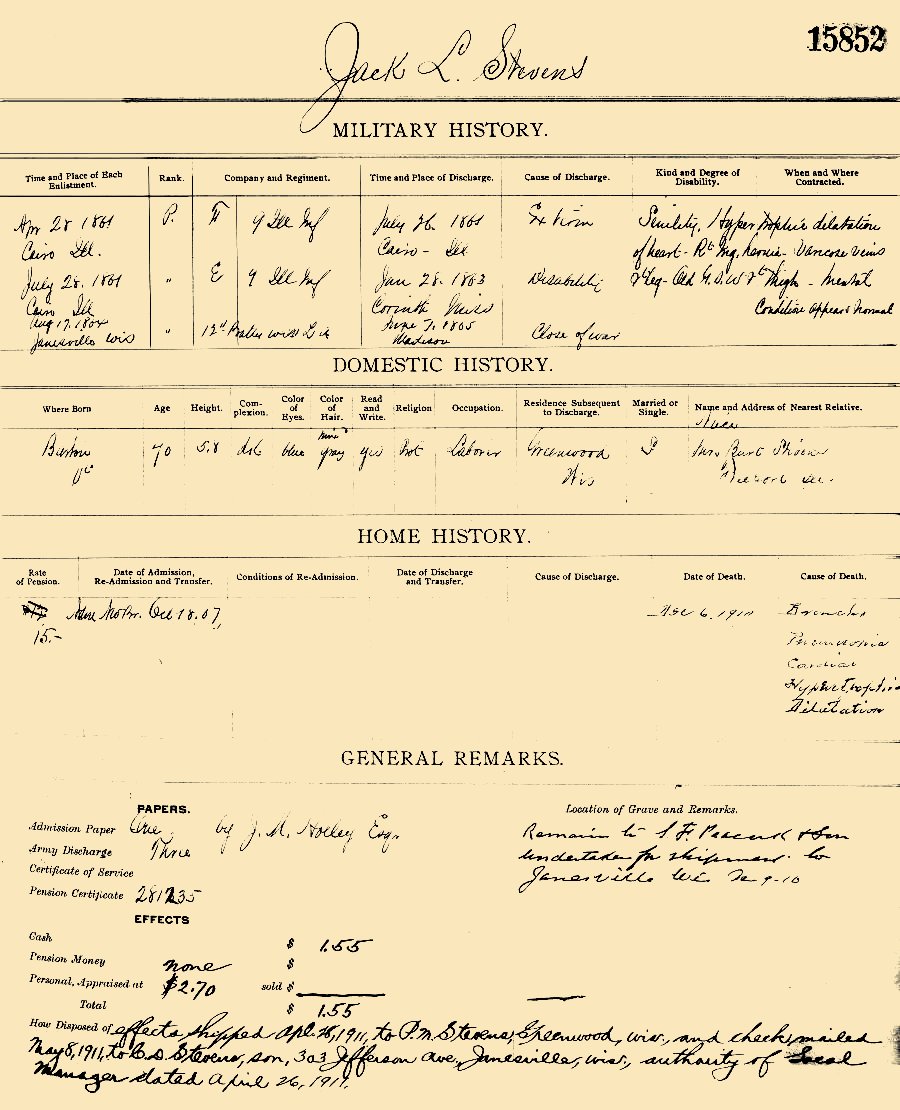 15852
Jack L. Stevens
MILITARY HISTORY.
Time and Place of Each Enlistment. Rank. Company and Regiment. Time and Place of Discharge. Cause of Discharge. Kind and Degree of Disability. When and Where Contracted.
Apr 28 1861 P. 9 Ill Inf July 26. 1861 Ex tirm Senility, Hypertrophic dilatation
Cairo Ill. Cairo - Ill of heart - Rt Ing. hernia - Varicose veins
July 28. 1861 " E 9 Ill Inf Jan 28. 1863 Disability Leg - Old G.S.W rt thigh - Mental
Cairo Ill Corinth Miss Condition appears normal
Aug 17. 1864 " 12th June 7, 1865 Close of war
Janesville Wis Madison
DOMESTIC HISTORY.
Where Born Age Height. Complexion. Color of Eyes. Color of Hair. Read and Write. Religion Occupation. Residence Subsequent to Discharge. Married or Single. Name and Address of Nearest Relative.
Niece
70 5.8 drk blue gray yes Prot Laborer Greenwood S Mrs Burt
Wis
HOME HISTORY.
Rate of Pension. Date of Admission, Re-Admission and Transfer. Conditions of Re-Admission. Date of Discharge and Transfer. Cause of Discharge. Date of Death. Cause of Death.
Oct 18. 07, Dec 6, 1910 Broncho
15.- Pneumonia
Cardiac
Hypertrophic
Dilatation
GENERAL REMARKS.
PAPERS. Location of Grave and Remarks.
Admission Paper One, by J. M. Holley Esq. Remain to S. F. Peacock & Son
Army Discharge Three undertaker for shipment to
Certificate of Service Janesville Wis
Pension Certificate 281235
EFFECTS
Cash $ 1.55
Pension Money none $
Personal, Appraised at $2.70 sold $
Total $ 1.55
How Disposed of effects shipped Apl. 28, 1911, to P.M. Stevens, Greenwood, wis., and check mailed
May 8, 1911, to C.D. Stevens, son, 303 Jefferson ave., Janesville, wis., authority of Local
Manager dated April 26, 1911.